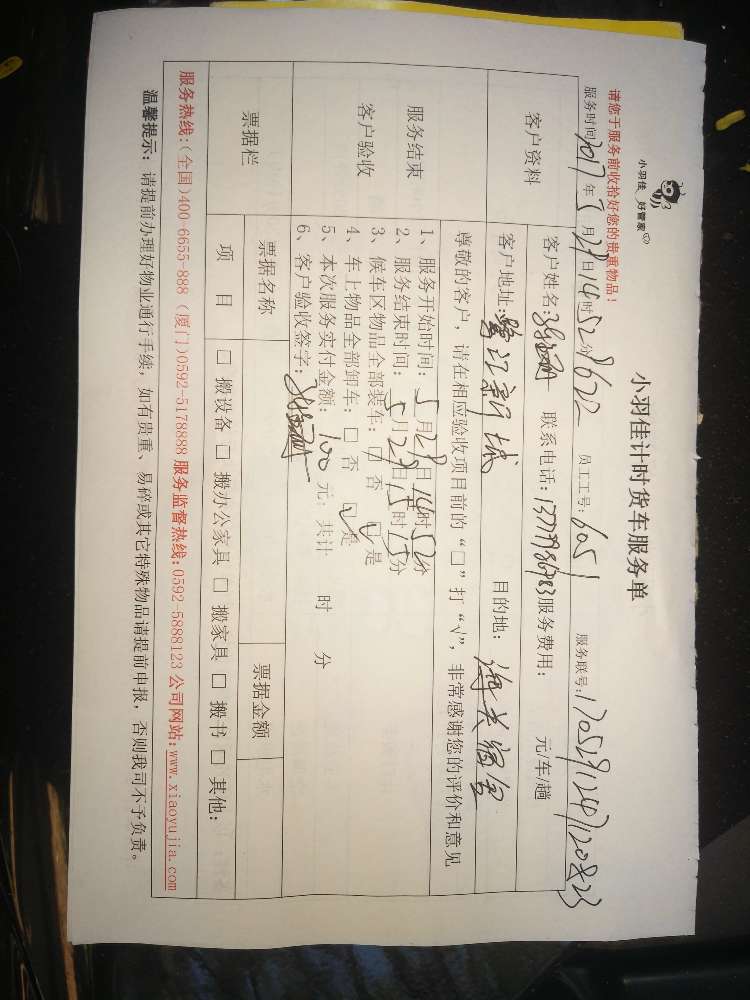 小羽佳 好管家
小羽佳计时货车服务单
请您于服务前收拾好您的贵重物品!
服务时间:2017年5月29日14时52分 8622 员工工号:6051 服务联号:
客户资料
客户姓名: 联系电话: 服务费用: 元/车/趟
客户地址:鹭江新城 目的地:海关宿舍
尊敬的客户,请在相应验收项目前的“□”打“√”,非常感谢您的评价和意见
服务结束
客户验收
1、服务开始时间:5月29日14时52分
2、服务结束时间:5月29日15时15分
3、候车区物品全部装车:□ 否 ☑ 是
4、车上物品全部卸车:□ 否 ☑ 是
5、本次服务实付金额:100元;共计 时 分
6、客户验收签字:
票据栏
票据名称 票据金额
项 目 □ 搬设备 □ 搬办公家具 □ 搬家具 □ 搬书 □ 其他:
服务热线:(全国)400-6655-888 (厦门)0592-5178888 服务监督热线:0592-5888123 公司网站:www.xiaoyujia.com
温馨提示:请提前办理好物业通行手续,如有贵重、易碎或其它特殊物品请提前申报,否则我司不予负责。